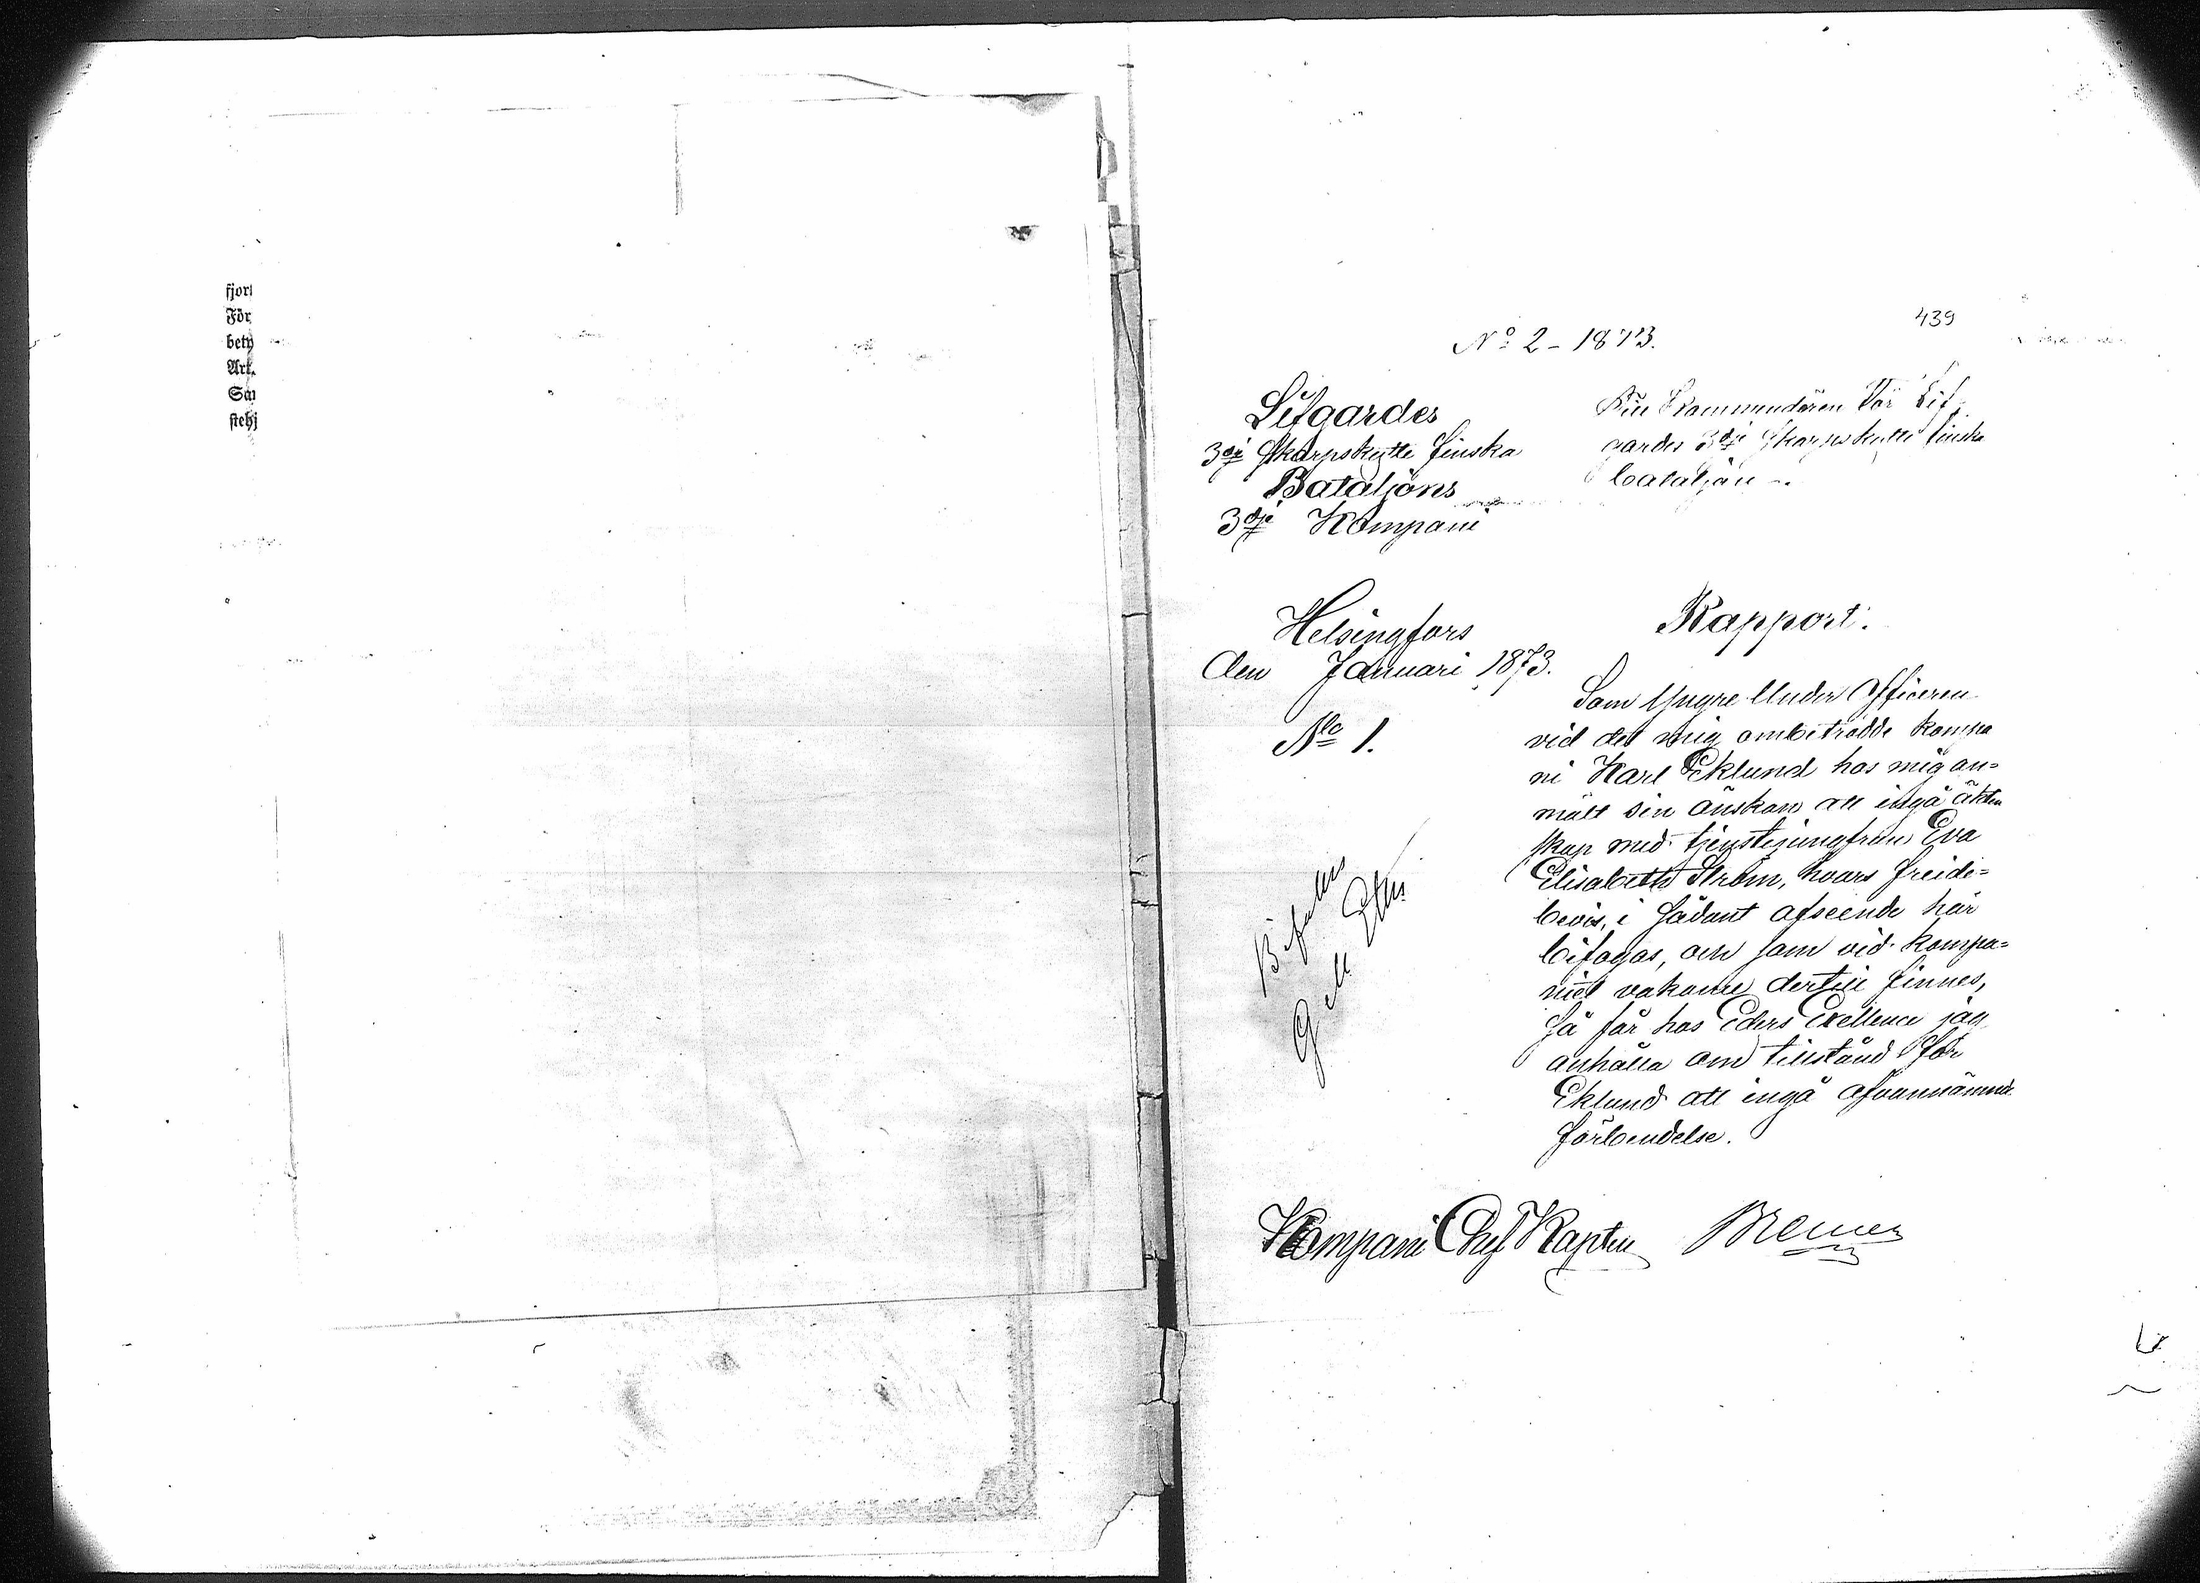 fjor
För
bety
Art.
Sa
stehj
439
No 2 - 1873.
Lifgardes
3dje Skarpskytte finska
Bataljöns
3dje Kompani
Till Kommendören för Lif-
gardes 3dje Skarpskytte finska
bataljon.
Helsingfors
den Januari 1873.
No 1.
Rapport.
Som Yngre Under Officeren
vid det mig ombetrodde kompa
ni Karl Eklund hos mig an=
mält sin önskan att ingå äkten
skap med tjenstejungfrun Eva
Elisabeth Ström, hvars freide=
bevis, i sådant afseende här
bifogas, och som vid kompa=
niet vakance dertill finnes,
så får hos Eders Exellence jag
anhålla om tillstånd för
Eklund att ingå ofvannämnde
förbindelse.
Bifalles
Kompani Chef Kapten Bremer